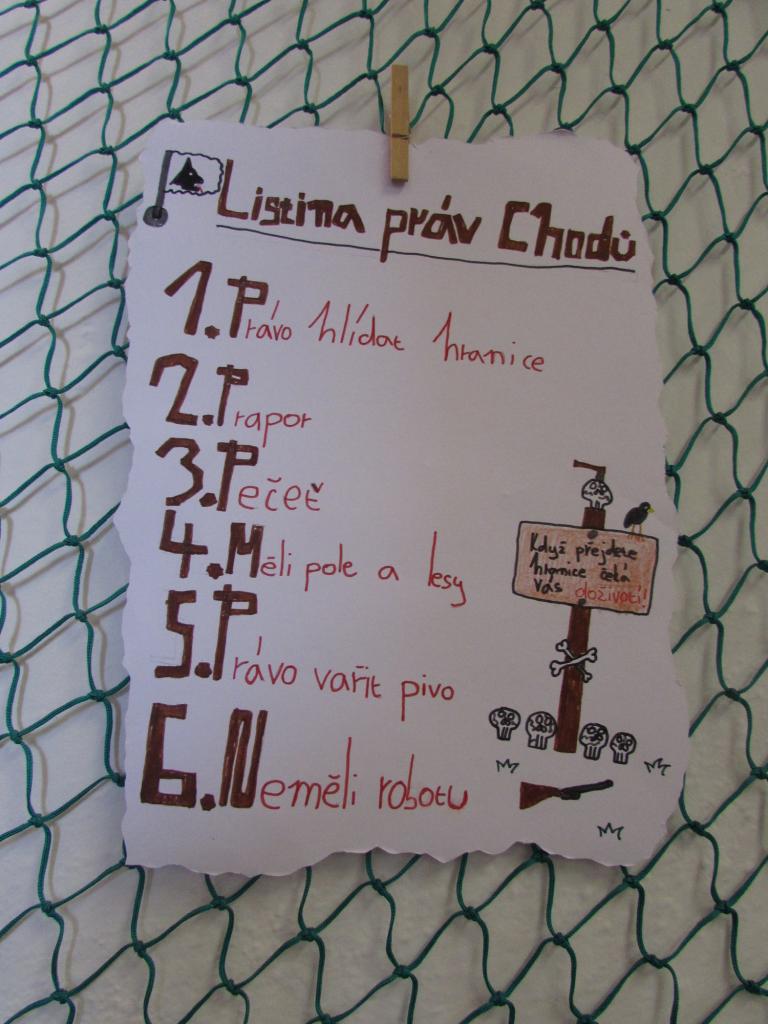 Listina práv Chodů
1. Právo hlídat hranice
2. Prapor
3. Pečeť
4. Měli pole a lesy
5. Právo vařit pivo
6. Neměli robotu
Když přejdete
hranice čeká
Vás doživotí!